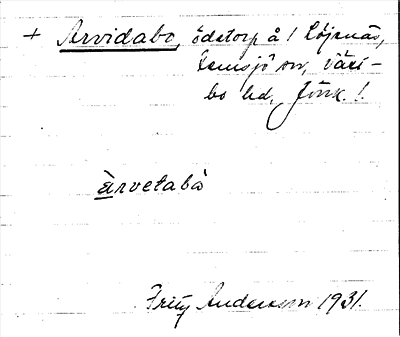 + Arvidabo, ödetorp å / Löjenäs,
Lemsjö sn, Väs-
bo hd, Jönk. l.
àrvetabå
Fritz Andersson 1931.